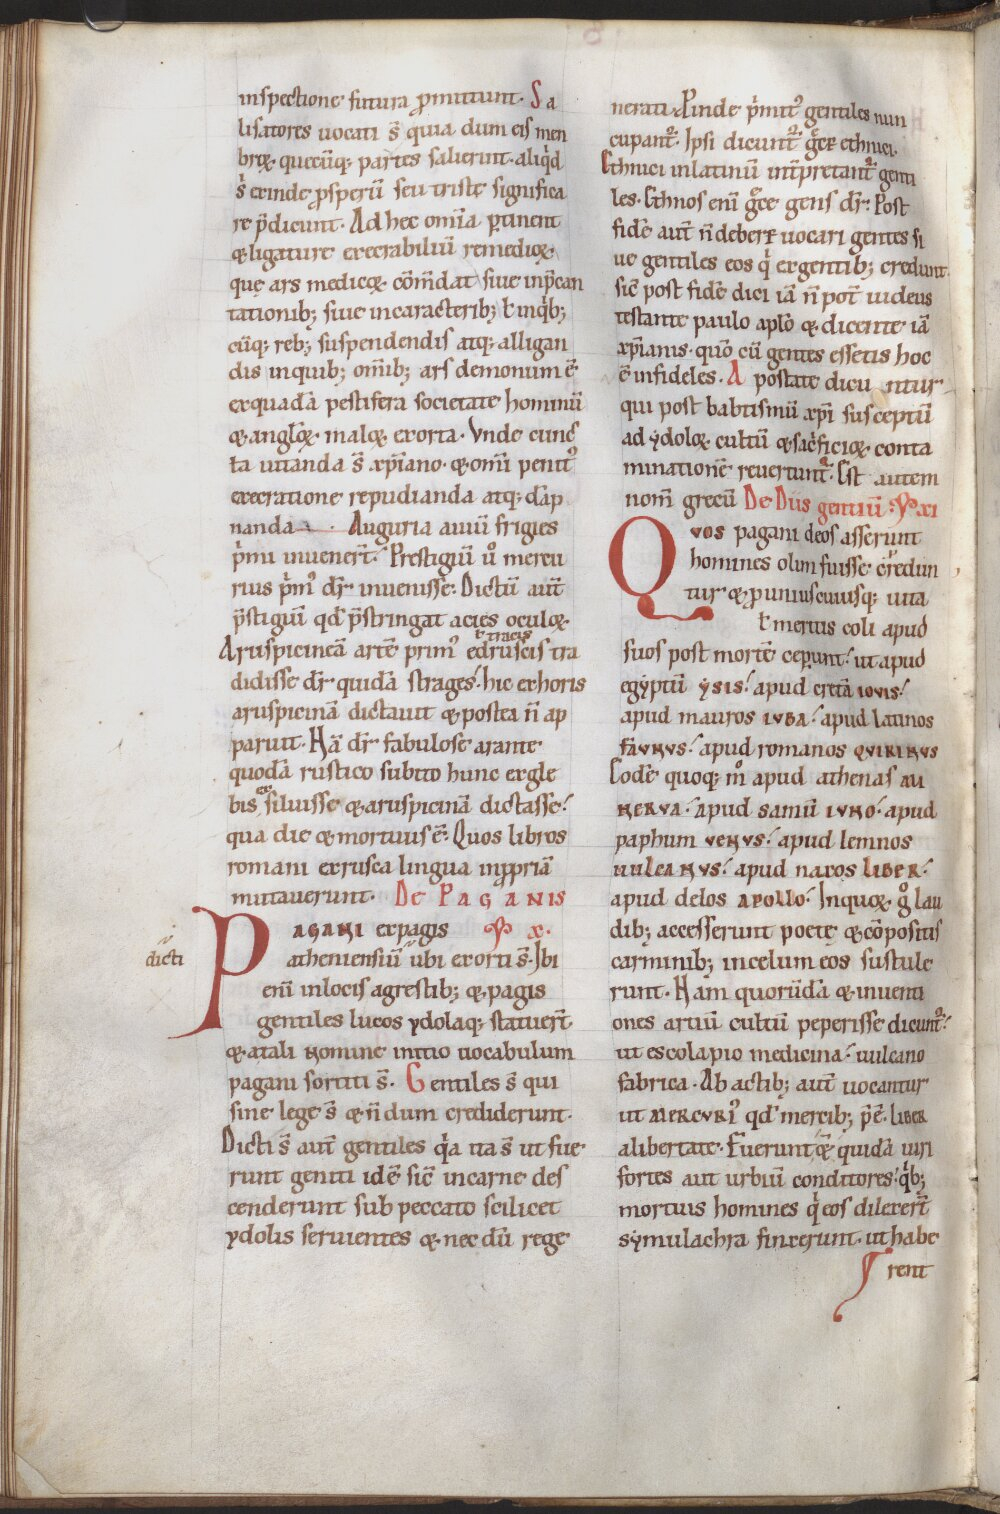 inspectione futura ꝓmittunt. Sa
lisatores uocati s̄ quia dum eis men
broꝝ quecūq; partes salierint. aliq̇d
s̄ exinde ꝓsperū seu triste significa
re p̄dicunt. Ad hec om̄ia ꝑtinent
& ligature execrabiliū remedioꝝ
quę ars medicoꝝ cōm̄dat siue inp̄can
tationib; siue in caracterib; ł inq̇b;
cūq; reb; suspendendis atq; alligan
dis in quib; om̄ib; ars demonum ē
ex quadā pestifera societate hominū
& angl̄oꝝ maloꝝ exorta. Vnde cunc
ta uitanda s̄ xp̄iano. & om̄i penit᾽
execratione repudianda atq; dāp
nanda. Auguria auiū frigies
p̄mi inuener̄t. Prestigiū u̇ mercu
rius p̄m᾽ dr̄ inuenisse. Dictū aut̄
p̄stigiū qd̄ p̄stringat acies oculoꝝ
Aruspicinēa artē prim᾽ edruscis tra
ł tracis
didisse dr̄ quidā strages. hic ex horis
aruspicinā dictauit & postea n̄ ap
paruit. Hā dr̄ fabulose arante
quodā rustico subito hunc ex gle
bis exsiluisse & aruspicinā dictasse.
qua die & mortuus ē. Quos libros
romani exrusca lingua in ꝓpriā
mutauerunt. De PAGANIS
PAGANI ex pagis X.
dicti
atheniensiū ubi exorti s̄. Ibi
eni in locis agrestib; & pagis
gentiles lucos ydolaq; statuer̄t
& a tali nomine initio uocabulum
pagani sortiti s̄. Gentiles s̄ qui
sine lege s̄ & n̄dum crediderunt.
Dicti s̄ aut̄ gentiles q̇a ita s̄ ut fue
runt geniti id ē sic̄ in carne des
cenderunt sub peccato scilicet
ydolis seruientes & nec dū rege
nerati. Pinde p̄mit᾽ gentiles nun
cupant᾽. Ipsi dicunt᾽ gc̄e ethnici.
Ethnici in latinū int̄pretant᾽ genti
les. Ethnos eni gc̄e gens dr̄. Post
fidē aut̄ n̄ debere uocari gentes si
ue gentiles eos q̇ ex gentib; credunt.
sic̄ post fidē dici iā n̄ pot̄ iudeus
testante paulo apl̄o & dicente iā
xp̄ianis. quō cū gentes essetis hoc
ē infideles. Apostate dicuntur
qui post babtismū xp̄i susceptū
ad ydoloꝝ cultū & sac̄ficioꝝ conta
minationē reuertunt᾽. Est autem
nom̄ grecū De Diis gentiū. XI
QVOS pagani deos asserunt
homines olim fuisse credun
tur & ꝓ uniuscuiusq; uita
ł meritis coli apud
suos post mortē ceperunt. ut apud
egyptū YSIS. apud cretā IOVIS.
apud mauros IVBA. apud latinos
FAVNVS. apud romanos QVIRINVS
Eodē quoq; m̊ apud athenas MI
NERVA. apud samū IVNO. apud
paphum VENVS. apud lemnos
UULCANVS. apud naxos LIBER.
apud delos APOLLO. In quoꝝ g̊ lau
dib; accesserunt poetę & cōpositis
carminib; in celum eos sustule
runt. Nam quorūdā & inuenti
ones artiū cultū peperisse dicunt᾽.
ut escolapio medicina. uulcano
fabrica. Ab actib; aut̄ uocantur
ut MERCVRI᾽ qd̄ mercib; p̄ ē. LIBER
a libertate. Fuerunt & quidā uiri
fortes aut urbiū conditores. q̇b;
mortuis homines q̇ eos dilexer̄t
symulachra finxerunt. ut habe
rent